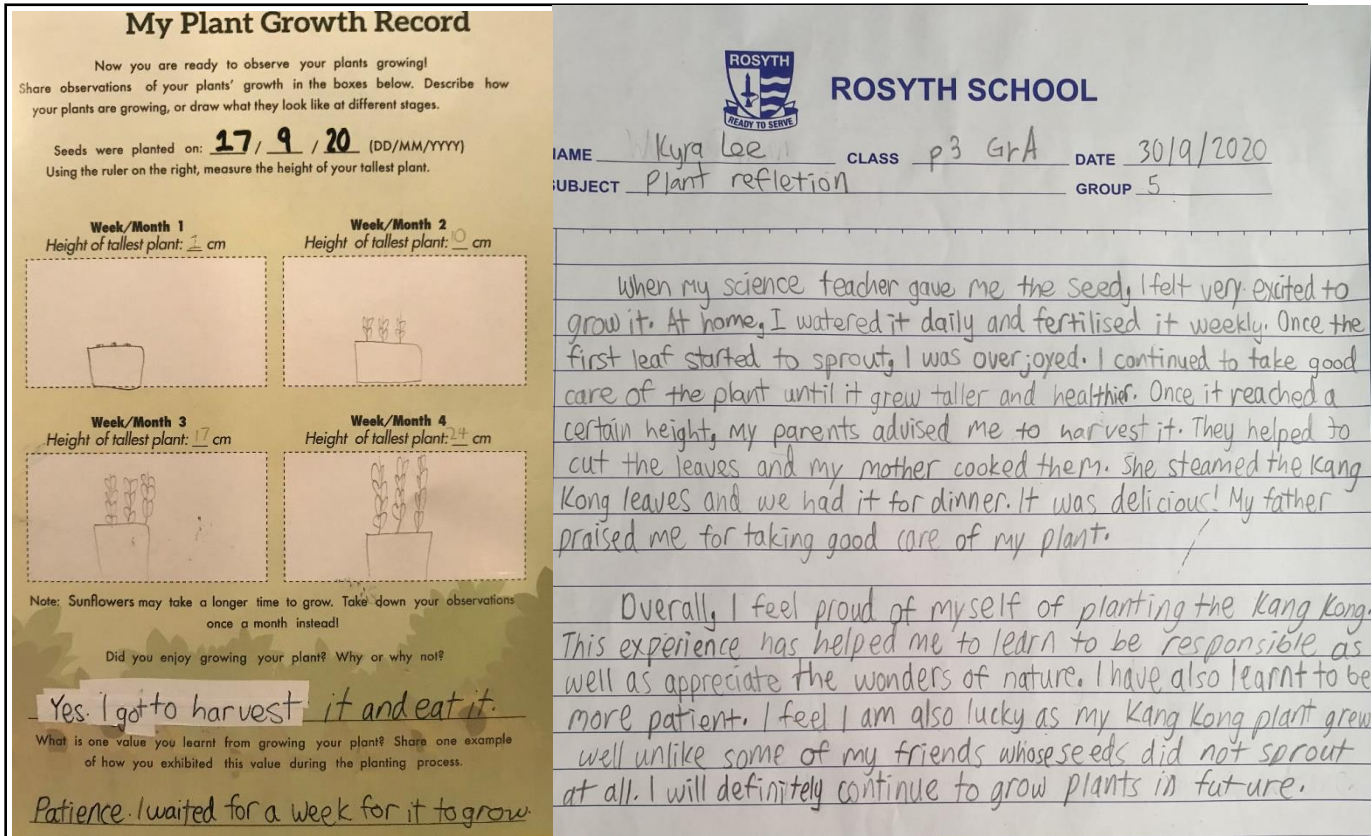 My Plant Growth Record
Now you are ready to observe your plants growing!
Share observations of your plants' growth in the boxes below. Describe how
your plants are growing, or draw what they look like at different stages.
Seeds were planted on: 17/ 9 / 20 (DD/MM/YYYY)
Using the ruler on the right, measure the height of your tallest plant.
Week/Month 1
Height of tallest plant: 1 cm
Week/Month 2
Height of tallest plant: 10 cm
Week/Month 3
Height of tallest plant: 17 cm
Week/Month 4
Height of tallest plant: 24 cm
Note: Sunflowers may take a longer time to grow. Take down your observations
once a month instead!
Did you enjoy growing your plant? Why or why not?
Yes. I got to harvest it and eat it.
What is one value you learnt from growing your plant? Share one example
of how you exhibited this value during the planting process.
Patience. I waited for a week for it to grow.
ROSYTH
READY TO SERVE
ROSYTH SCHOOL
NAME Kyra Lee CLASS p3 GrA DATE 30/9/2020
SUBJECT Plant refletion GROUP 5
When my science teacher gave me the seed, I felt very excited to
grow it. At home, I watered it daily and fertilised it weekly. Once the
first leaf started to sprout, I was overjoyed. I continued to take good
care of the plant until it grew taller and healthier. Once it reached a
certain height, my parents advised me to harvest it. They helped to
cut the leaves and my mother cooked them. She steamed the Kang
Kong leaves and we had it for dinner. It was delicious! My father
praised me for taking good care of my plant.
Overall, I feel proud of myself of planting the Kang Kong.
This experience has helped me to learn to be responsible as
well as appreciate the wonders of nature. I have also learnt to be
more patient. I feel I am also lucky as my Kang Kong plant grew
well unlike some of my friends whose seeds did not sprout
at all. I will definitely continue to grow plants in future.